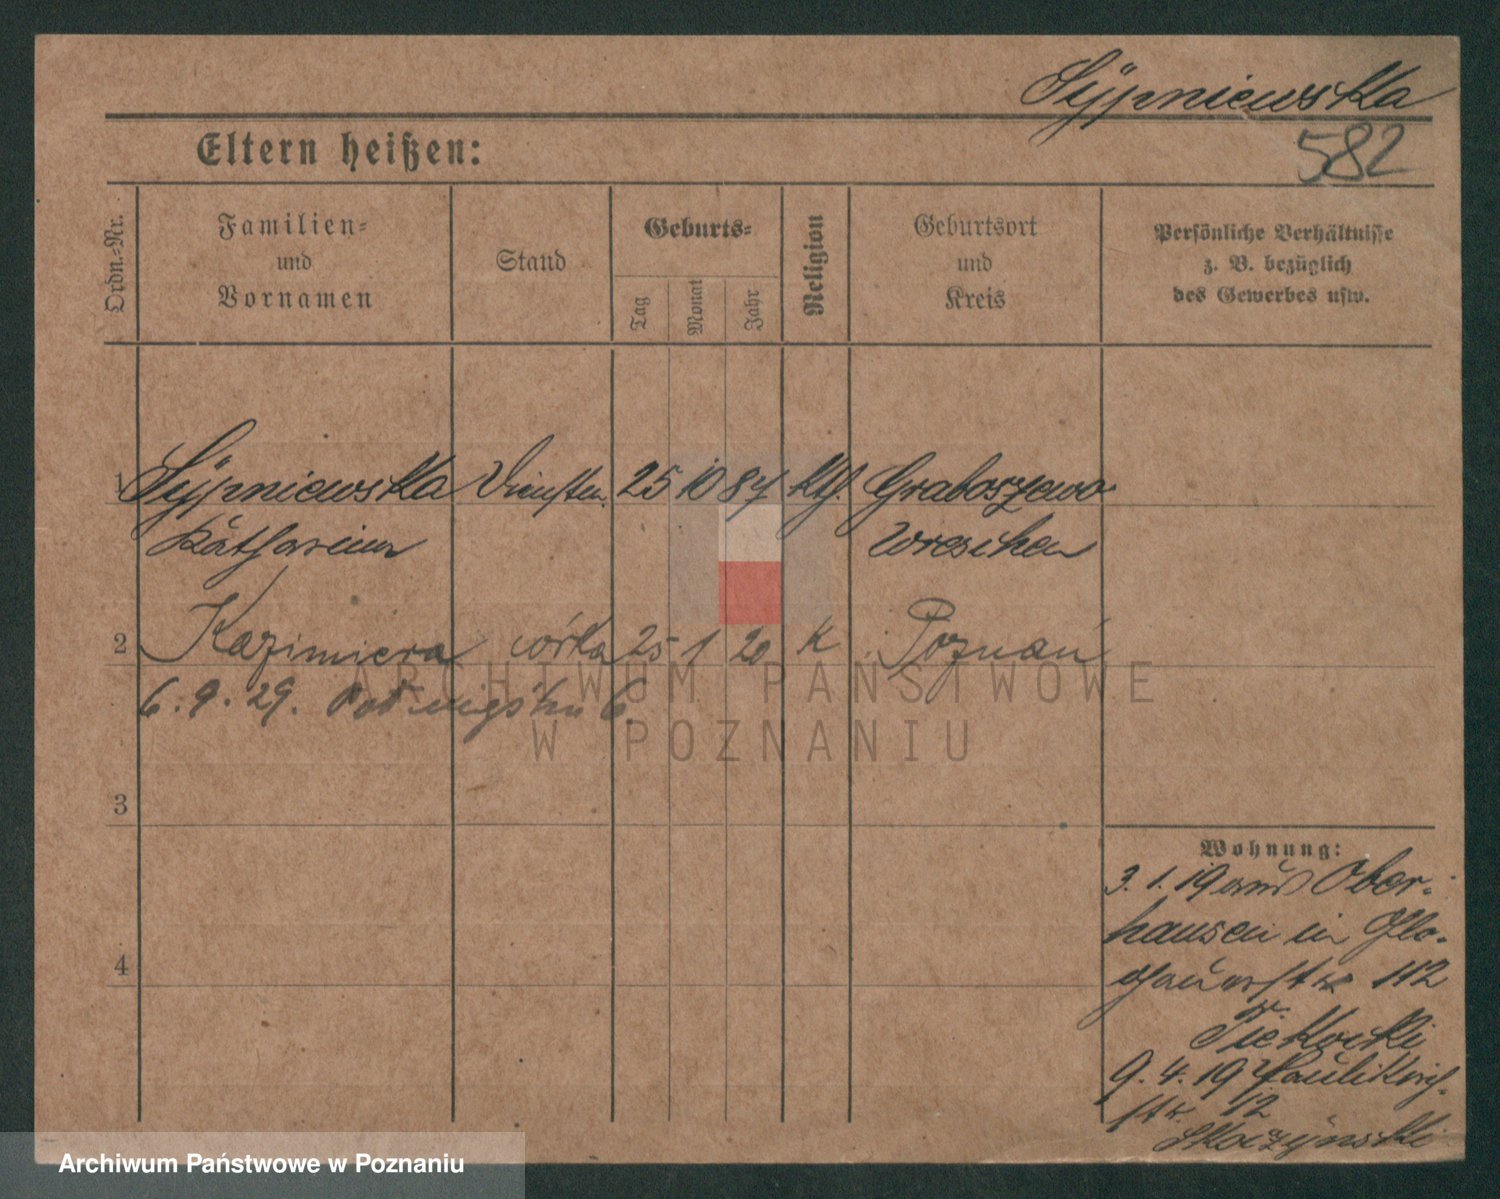 Sÿpniewska
582
Eltern heißen:
Ordn.-Nr.
Familien-
und
Vornamen
Stand
Geburts-
Tag
Monat
Jahr
Religion
Geburtsort
und
Kreis
Persönliche Verhältnisse
z. B. bezüglich
des Gewerbes usw.
1 Sÿpniewska 25 10 87 kth. Graboszewo
Katharina Wreschen
2 Kazimiera córka 25 1 20 k Poznań
6. 9. 29. 6.
3
4
Wohnung:
3. 1. 19 aus Ober-
hausen in Glo-
gauerstr 112
9. 4. 19 Paulikirch-
str. 12
Skoczÿnski
ARCHIWUM PAŃSTWOWE
W POZNANIU
Archiwum Państwowe w Poznaniu